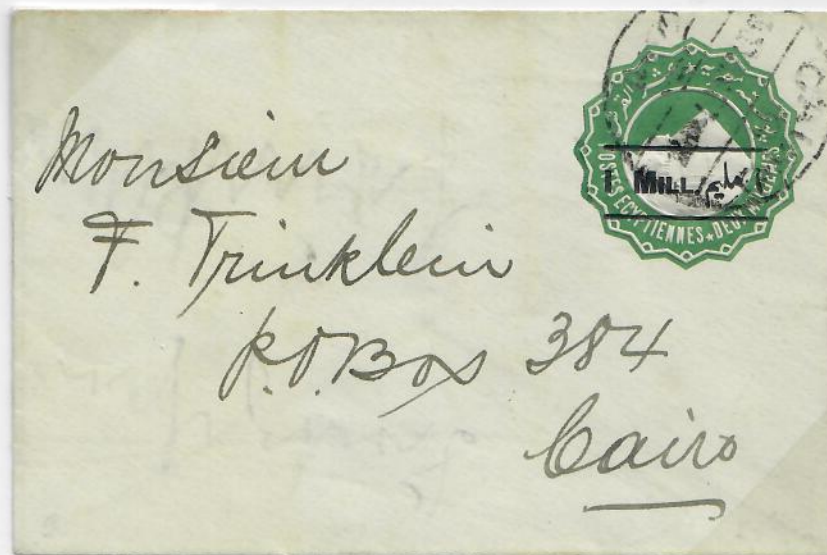 Monsieur
F. Trinklein
P.O. Box 384
Cairo
POSTES EGYPTIENNES ★ DEUX MILLIEMES
1 MILL. مليم